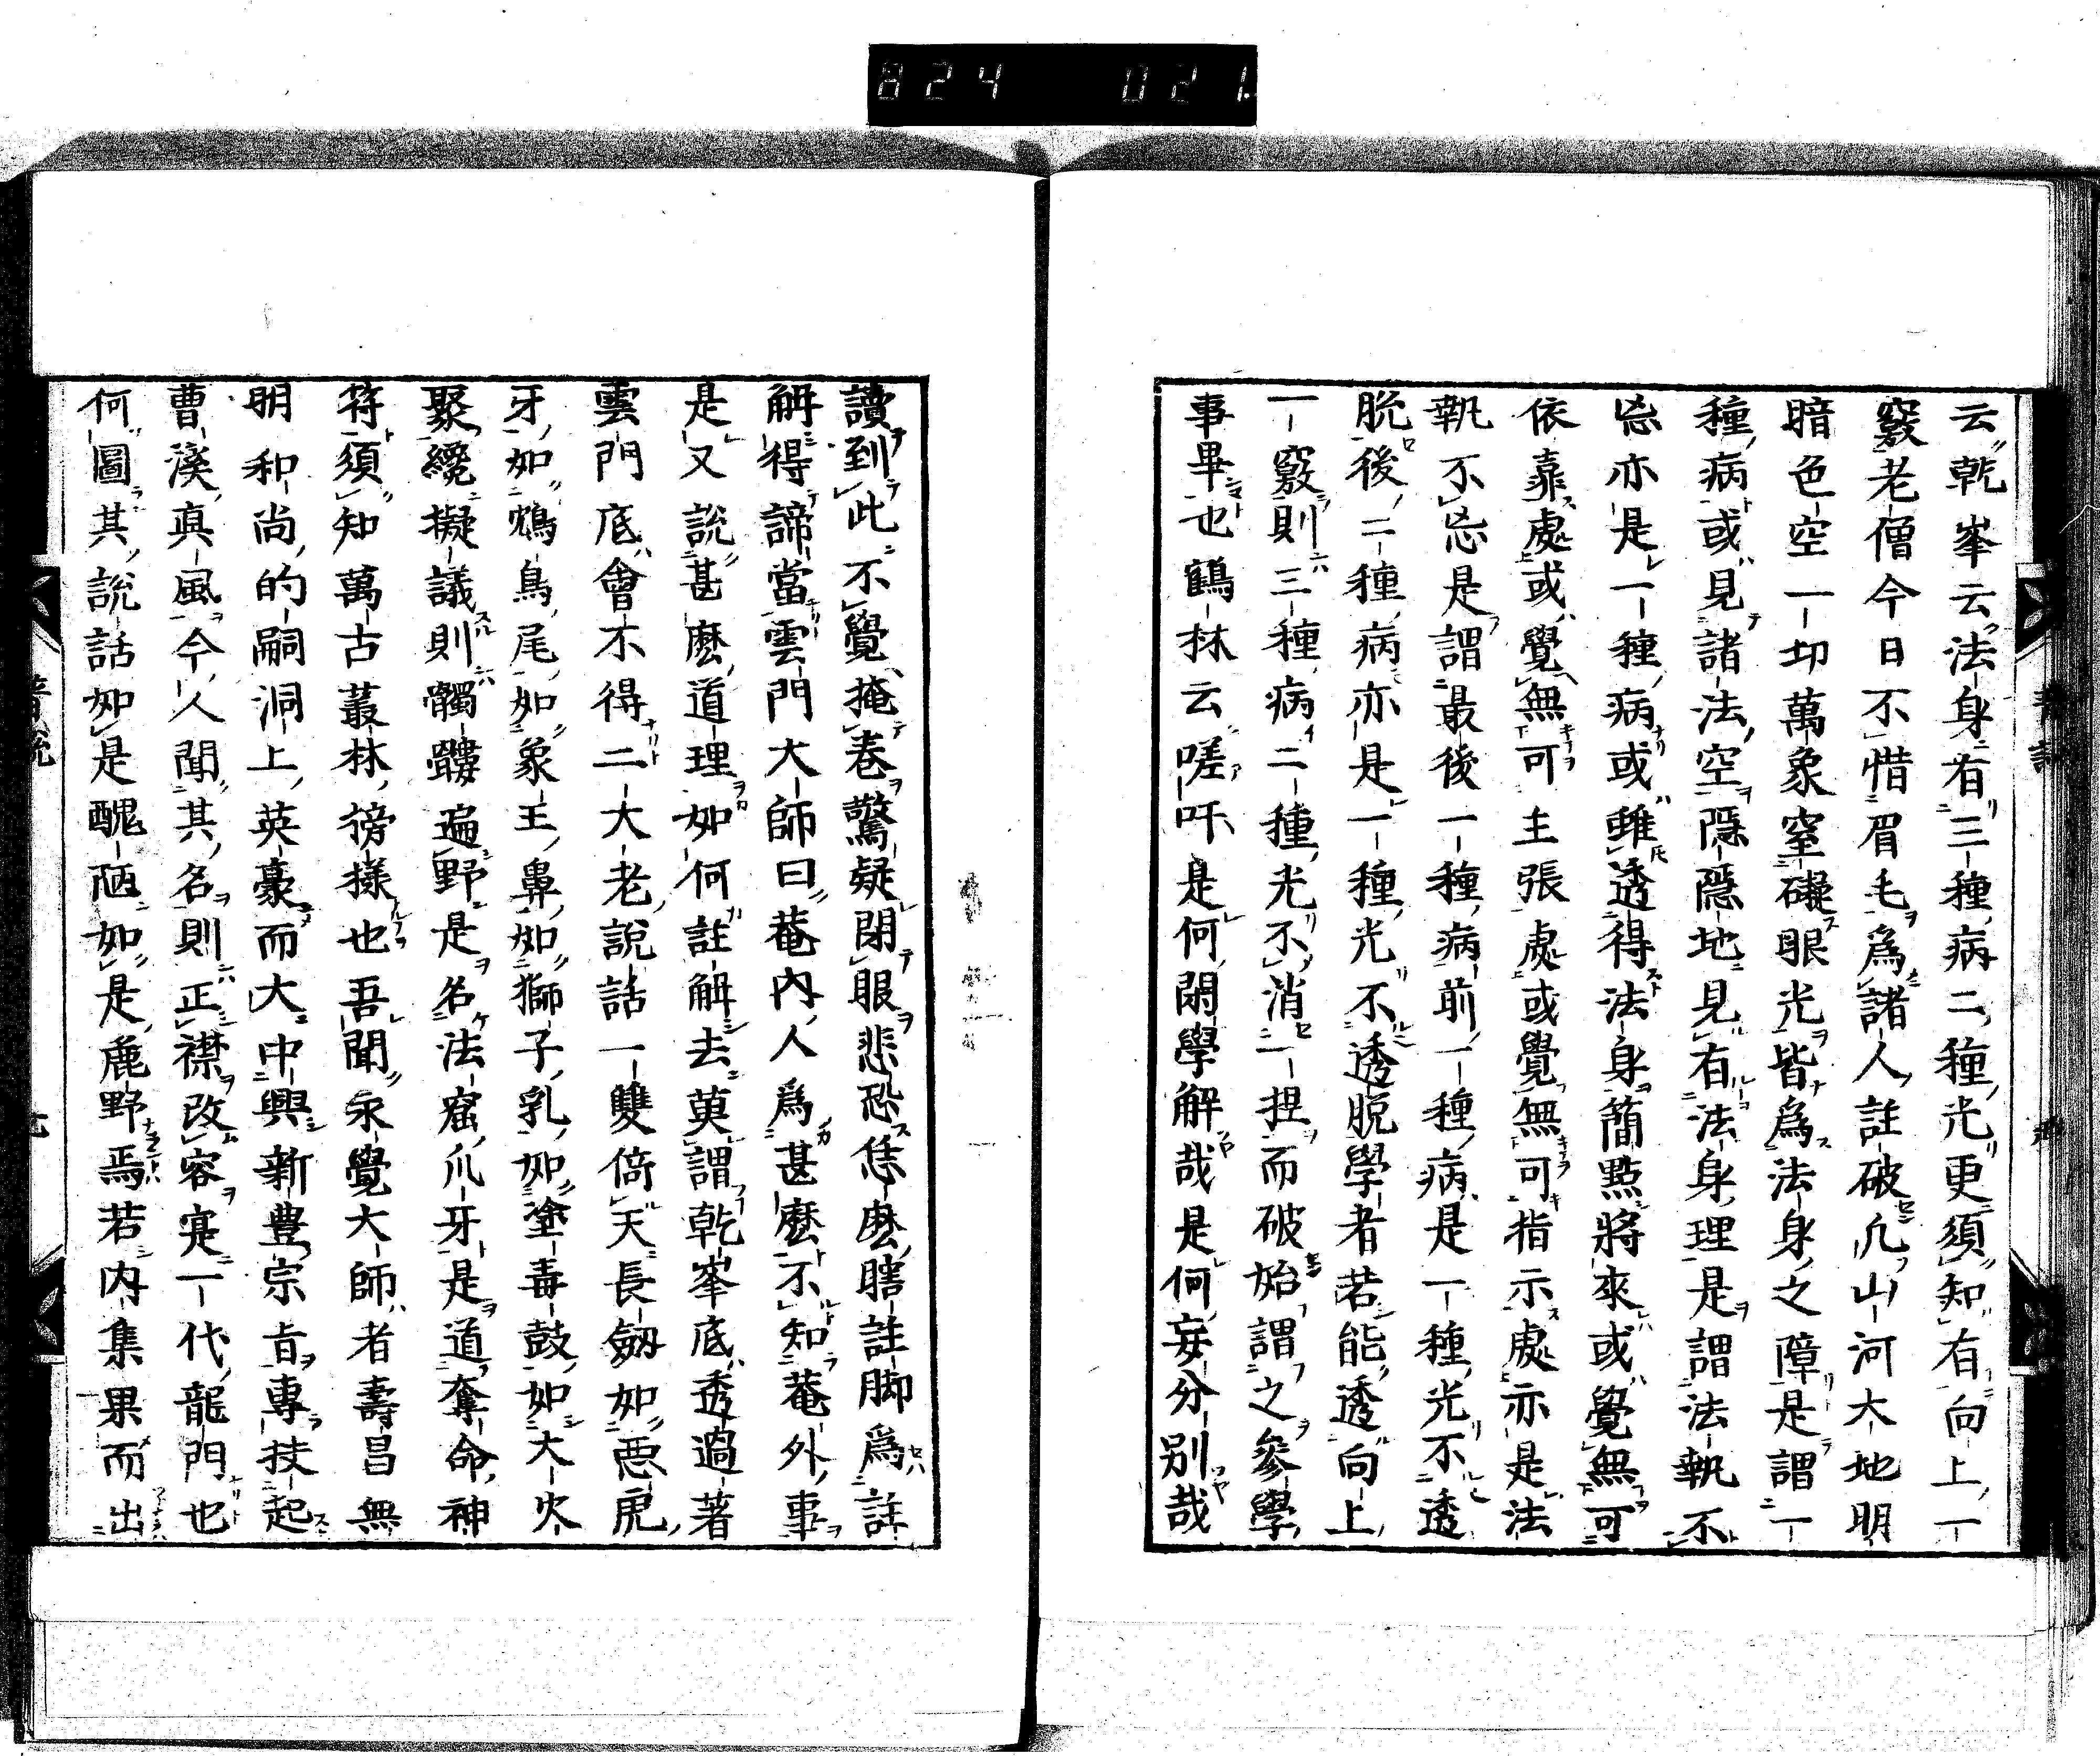 824 021
云乾峯云法身有三種病二種光更須知有向上一
竅老僧今日不惜眉毛爲諸人註破凡山河大地明
暗色空一切萬象窒礙眼光皆爲法身之障是謂一
種病或見諸法空隱隱地見有法身理是謂法執不
忘亦是一種病或雖透得法身簡點將來或覺無可
依靠處或覺無可主張處或覺無可指示處亦是法
執不忘是謂最後一種病前一種病是一種光不透
脱後二種病亦是一種光不透脱學者若能透向上
一竅則三種病二種光不消一捏而破始謂之參學
事畢也鶴林云嗟吁是何閑學解哉是何妄分別哉
讀到此不覺掩巻驚疑閉眼悲恐恁麽瞎註脚爲註
解得諦當雲門大師曰菴内人爲甚麽不知菴外事
是又說甚麽道理如何註解去莫謂乾峯底透過著
雲門底會不得二大老說話一雙倚天長劔如惡虎
牙如鴆鳥尾如象王鼻如獅子乳如塗毒鼓如大火
聚纔擬議則髑髏遍野是名法窟爪牙是道奪命神
符須知萬古叢林徬樣也吾聞永覺大師者壽昌無
明和尚的嗣洞上英豪而大中興新豊宗㫖專扶起
曹溪真風今人聞其名則正襟改容寔一代龍門也
何圖其說話如是醜陋如是麁野焉若内集果而出